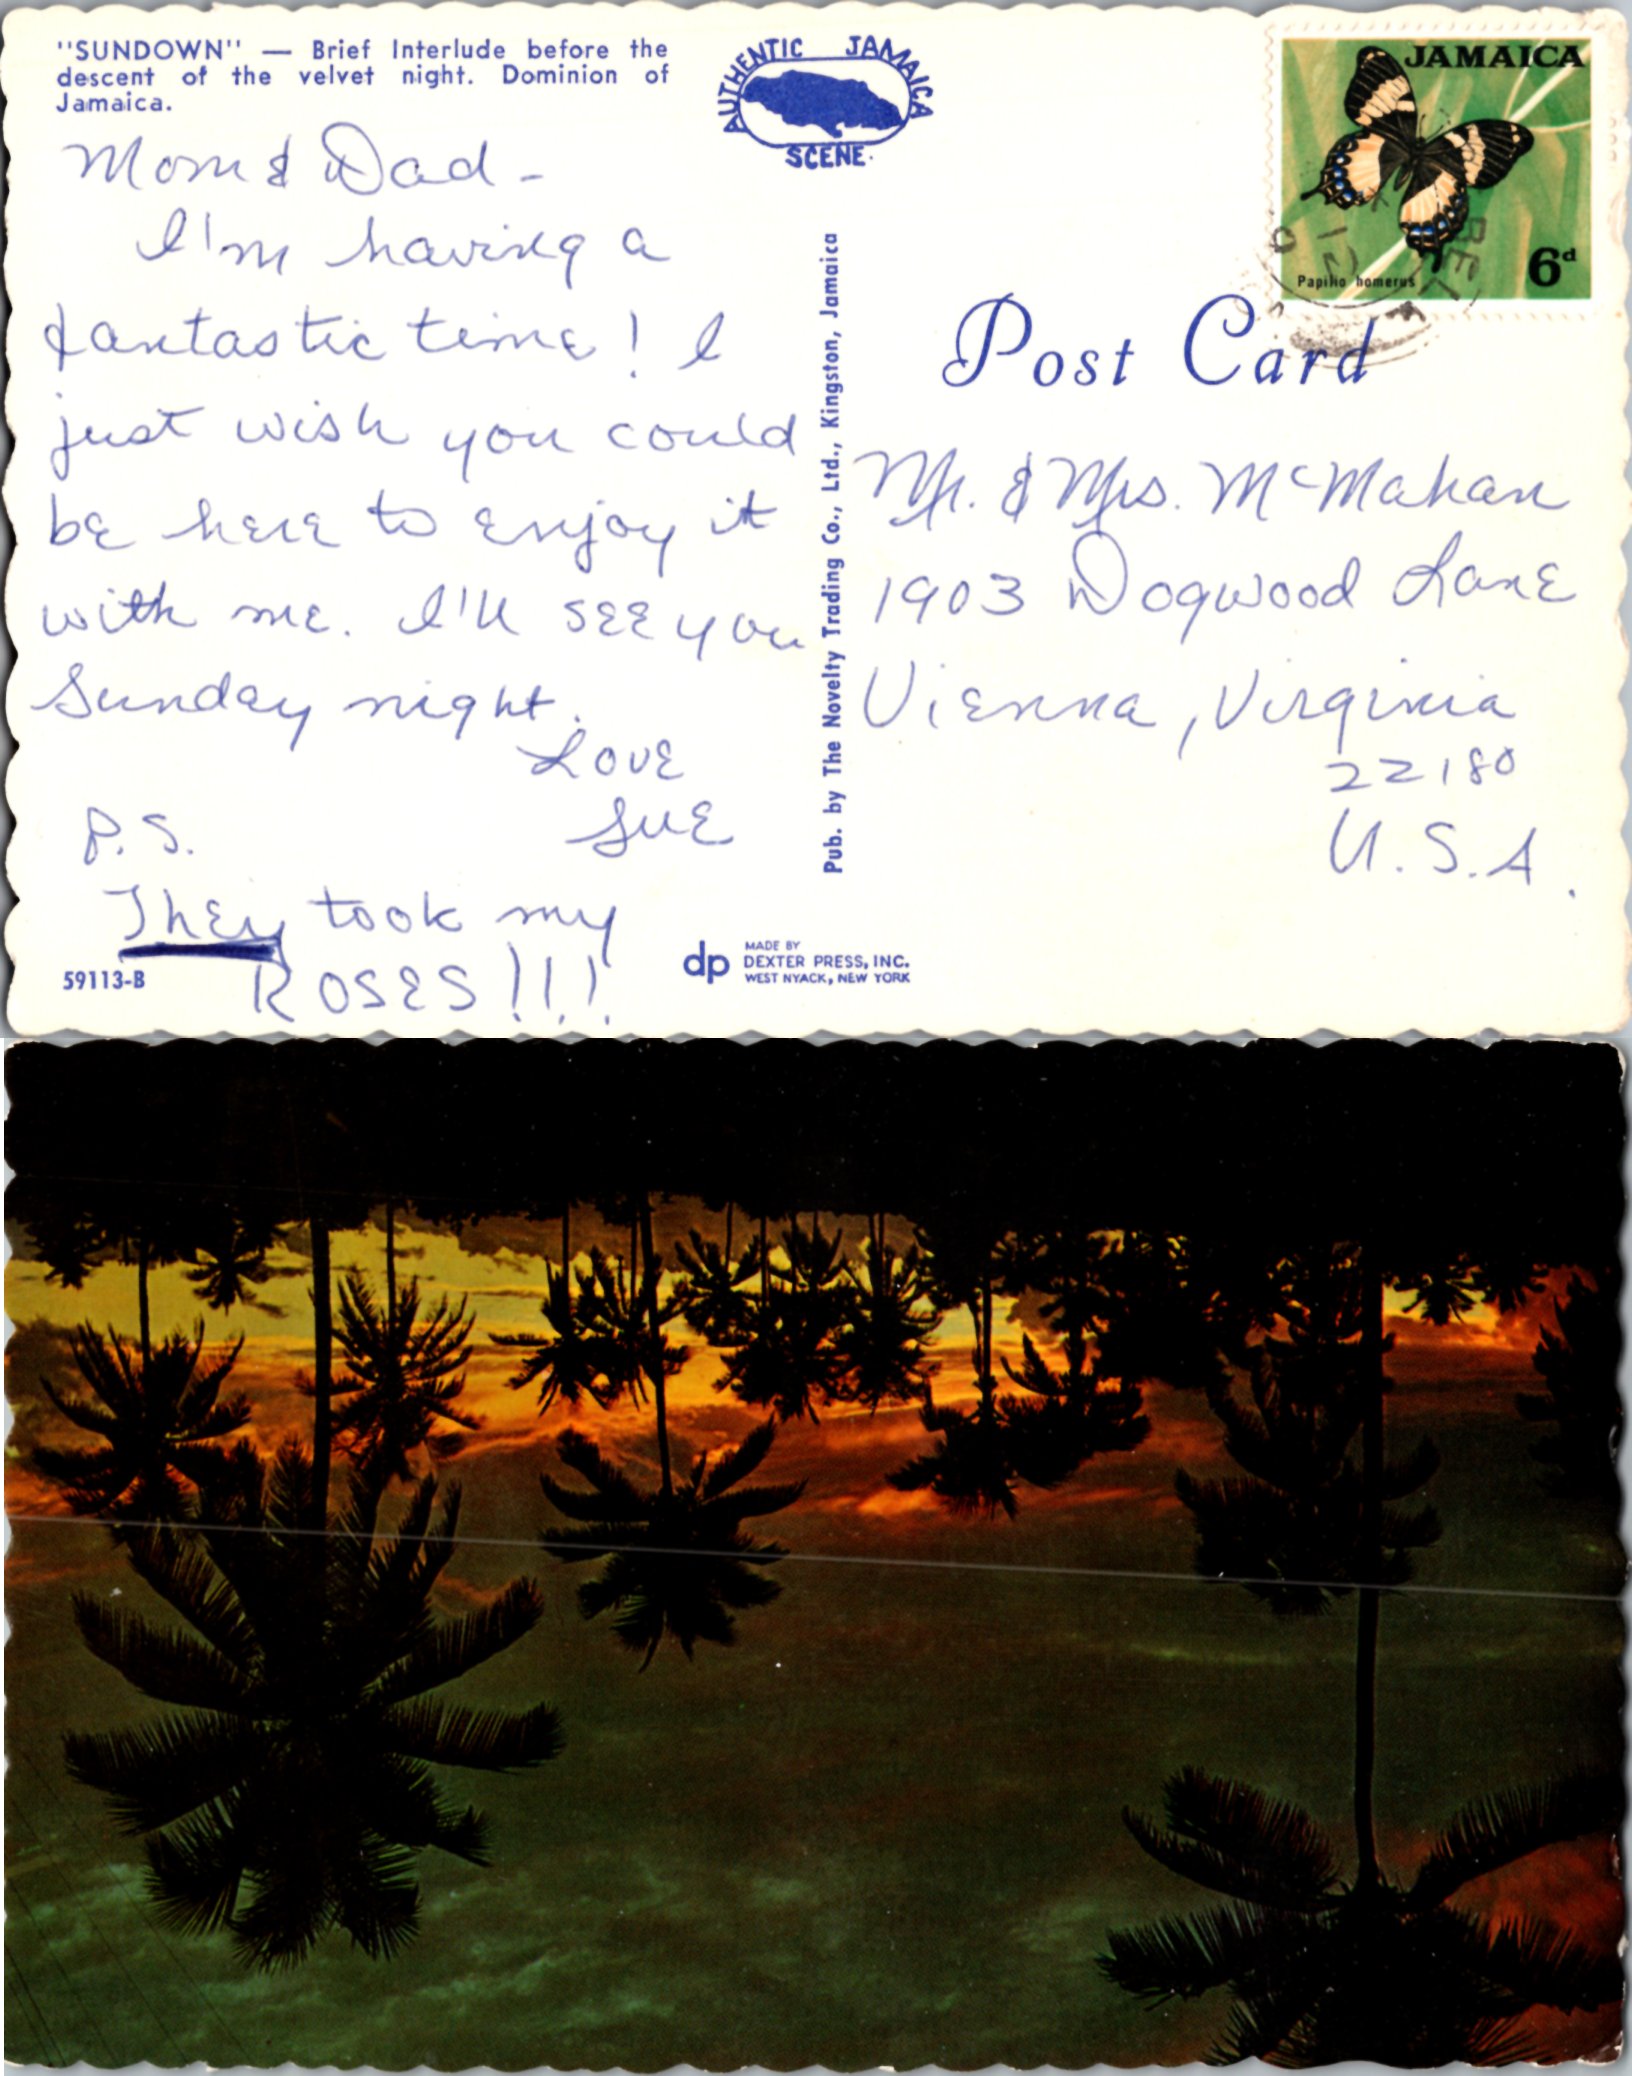 "SUNDOWN" — Brief Interlude before the
descent of the velvet night. Dominion of
Jamaica.
AUTHENTIC JAMAICA
SCENE.
JAMAICA
Papilio homerus
6d
Mom & Dad -
I'm having a
fantastic time! I
just wish you could
be here to enjoy it
with me. I'll see you
Sunday night.
Love
Sue
P.S.
They took my
ROSES!!!
59113-B
Pub. by The Novelty Trading Co., Ltd., Kingston, Jamaica
dp
MADE BY
DEXTER PRESS, INC.
WEST NYACK, NEW YORK
Post Card
Mr. & Mrs. McMahan
1903 Dogwood Lane
Vienna, Virginia
22180
U.S.A.